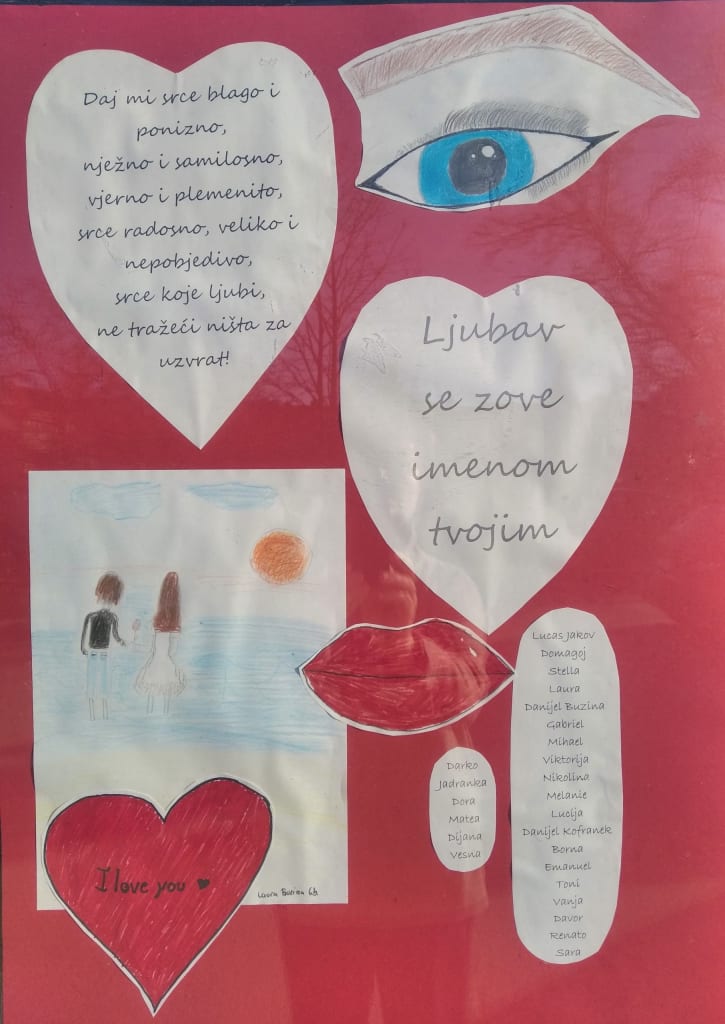 Daj mi srce blago i
ponizno,
nježno i samilosno,
vjerno i plemenito,
srce radosno, veliko i
nepobjedivo,
srce koje ljubi,
ne tražeći ništa za
uzvrat!
Ljubav
se zove
imenom
tvojim
I love you ♥
Laura Buzina 6.b.
Darko
Jadranka
Dora
Matea
Dijana
Vesna
Lucas Jakov
Domagoj
Stella
Laura
Danijel Buzina
Gabriel
Mihael
Viktorija
Nikolina
Melanie
Lucija
Danijel Kofranek
Borna
Emanuel
Toni
Vanja
Davor
Renato
Sara